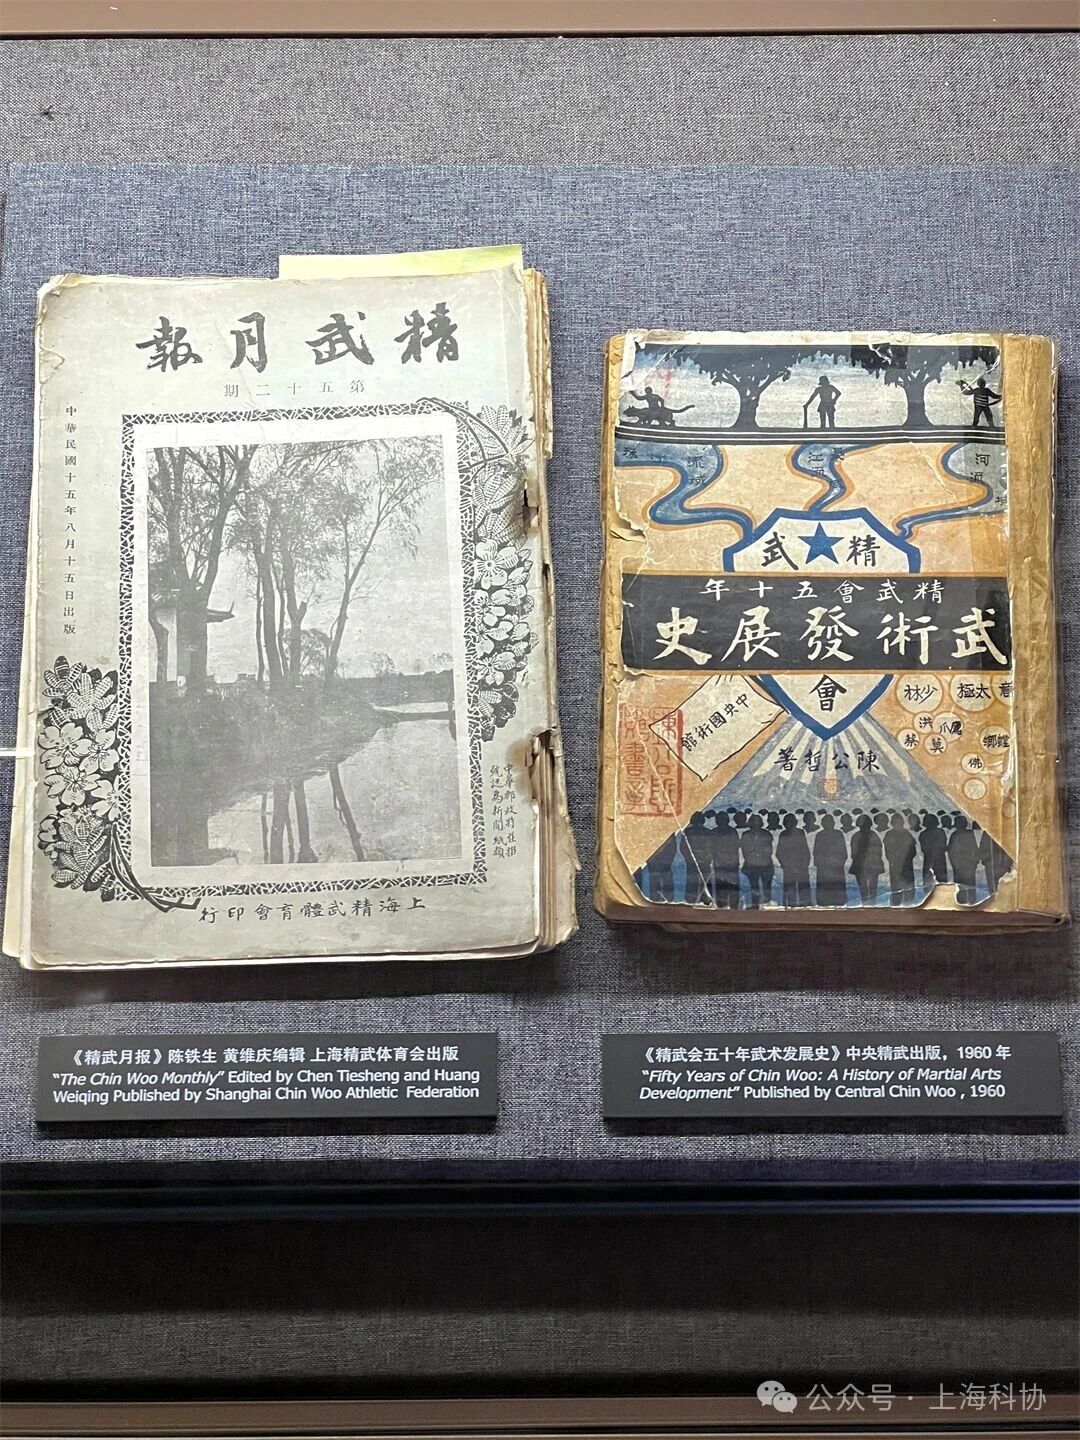 精武月報
第五十二期
中華民國十五年八月十五日出版
中華郵政特准掛
號認為新聞紙類
上海精武體育會印行
流域
江流
河流域
精武
精武會五十年
武術發展史
會
中央國術館
陳公哲著
少林
太極
意
洪
鷹爪
螳螂
蔡
莫
佛
《精武月报》陈铁生 黄维庆编辑 上海精武体育会出版
“The Chin Woo Monthly” Edited by Chen Tiesheng and Huang
Weiqing Published by Shanghai Chin Woo Athletic Federation
《精武会五十年武术发展史》中央精武出版，1960 年
“Fifty Years of Chin Woo: A History of Martial Arts
Development” Published by Central Chin Woo , 1960
公众号 · 上海科协